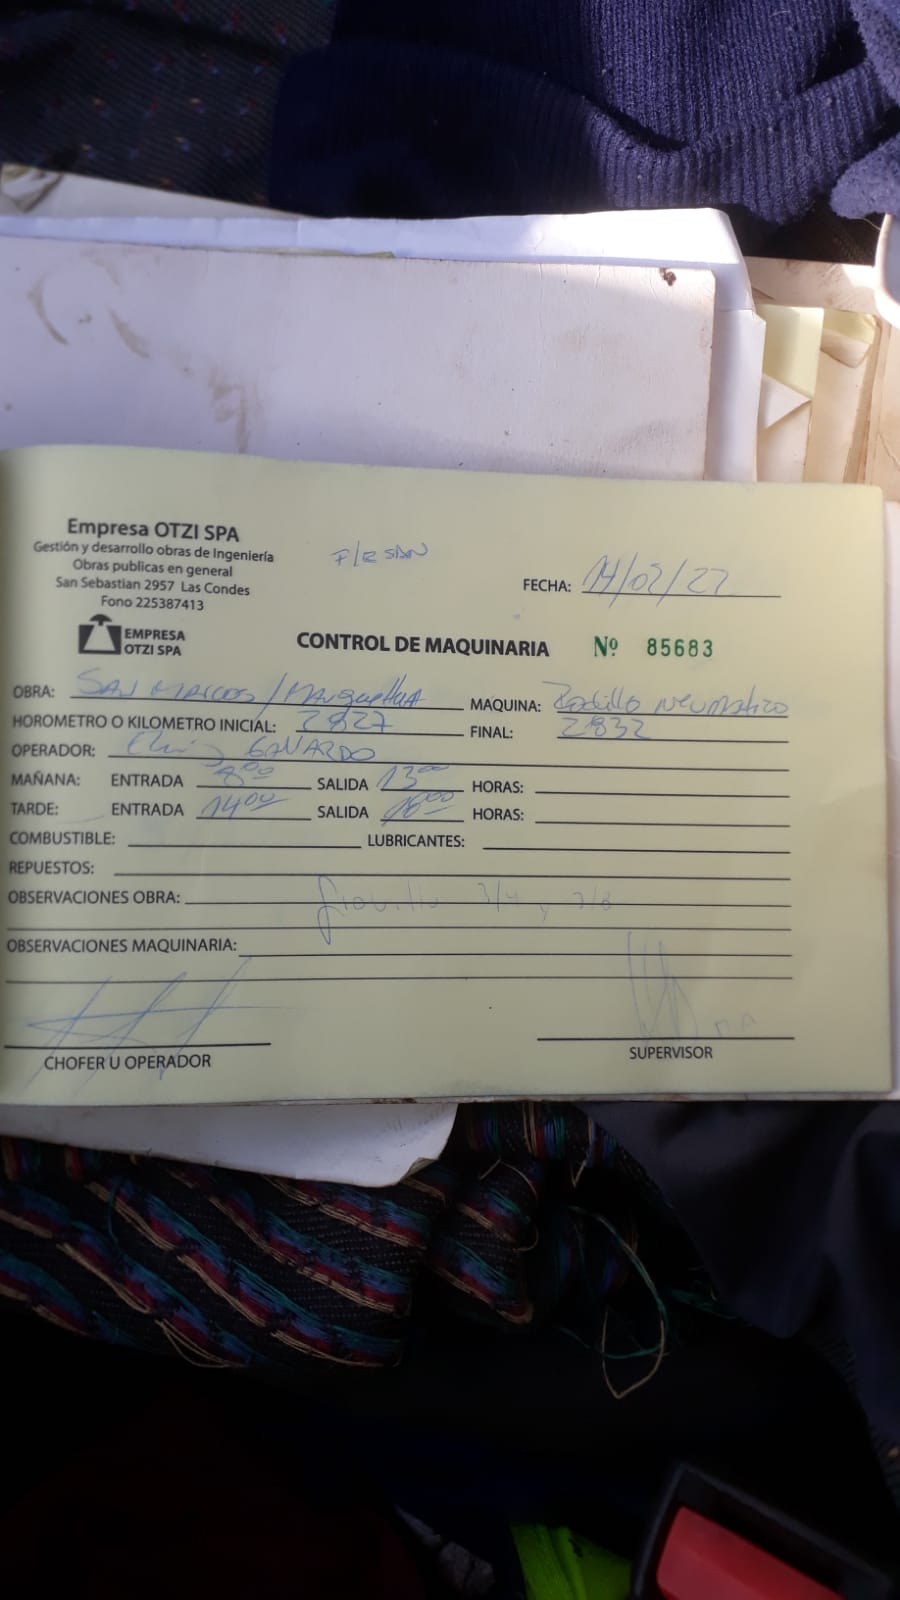 Empresa OTZI SPA
Gestión y desarrollo obras de Ingeniería
Obras publicas en general
San Sebastian 2957 Las Condes
Fono 225387413
EMPRESA
OTZI SPA
FECHA: 14/02/22
CONTROL DE MAQUINARIA Nº 85683
OBRA: SAN MARCOS /
MAQUINA: Rodillo Neumatico
HOROMETRO O KILOMETRO INICIAL: 2827 FINAL: 2832
OPERADOR:
MAÑANA: ENTRADA 8:00 SALIDA 13:00 HORAS:
TARDE: ENTRADA 14:00 SALIDA HORAS:
COMBUSTIBLE: LUBRICANTES:
REPUESTOS:
OBSERVACIONES OBRA: 3/4 y 3/8
OBSERVACIONES MAQUINARIA:
CHOFER U OPERADOR
SUPERVISOR